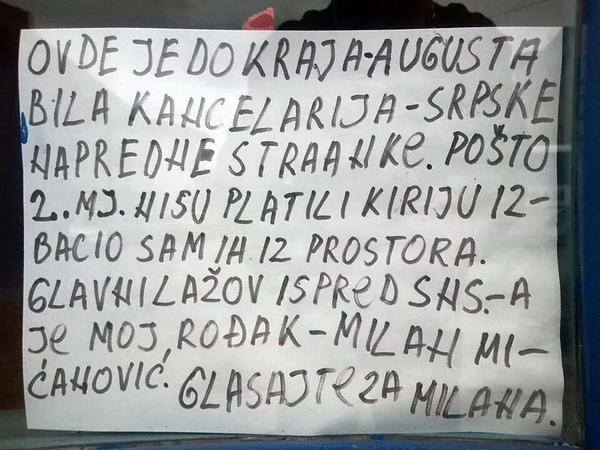 OVDE JE DO KRAJA-AUGUSTA
BILA KAHCELARIJA-SRPSKE
HAPREDHE STRAAHKe. POŠTO
2. MJ. HISU PLATILI KIRIJU IZ-
BACIO SAM IH IZ PROSTORA.
GLAVHI LAŽOV ISPReD SHS.-A
Je MOJ, ROĐAK-MILAH MI-
ĆAHOVIĆ. GLASAJTe ZA MILAHA.